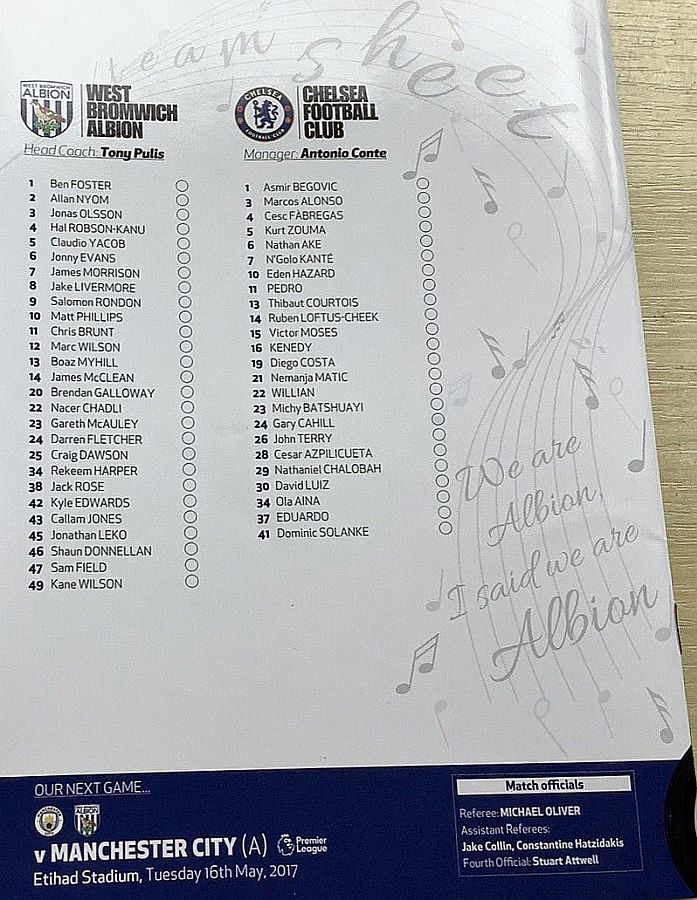 team sheet
WEST BROMWICH
ALBION
WEST
BROMWICH
ALBION
Head Coach: Tony Pulis
1 Ben FOSTER
2 Allan NYOM
3 Jonas OLSSON
4 Hal ROBSON-KANU
5 Claudio YACOB
6 Jonny EVANS
7 James MORRISON
8 Jake LIVERMORE
9 Salomon RONDON
10 Matt PHILLIPS
11 Chris BRUNT
12 Marc WILSON
13 Boaz MYHILL
14 James McCLEAN
20 Brendan GALLOWAY
22 Nacer CHADLI
23 Gareth McAULEY
24 Darren FLETCHER
25 Craig DAWSON
34 Rekeem HARPER
38 Jack ROSE
42 Kyle EDWARDS
43 Callam JONES
45 Jonathan LEKO
46 Shaun DONNELLAN
47 Sam FIELD
49 Kane WILSON
CHELSEA
FOOTBALL CLUB
CHELSEA
FOOTBALL
CLUB
Manager: Antonio Conte
1 Asmir BEGOVIC
3 Marcos ALONSO
4 Cesc FÀBREGAS
5 Kurt ZOUMA
6 Nathan AKE
7 N'Golo KANTÉ
10 Eden HAZARD
11 PEDRO
13 Thibaut COURTOIS
14 Ruben LOFTUS-CHEEK
15 Victor MOSES
16 KENEDY
19 Diego COSTA
21 Nemanja MATIC
22 WILLIAN
23 Michy BATSHUAYI
24 Gary CAHILL
26 John TERRY
28 Cesar AZPILICUETA
29 Nathaniel CHALOBAH
30 David LUIZ
34 Ola AINA
37 EDUARDO
41 Dominic SOLANKE
We are
Albion,
I said we are
Albion
OUR NEXT GAME...
ALBION
v MANCHESTER CITY (A)
Premier
League
Etihad Stadium, Tuesday 16th May, 2017
Match officials
Referee: MICHAEL OLIVER
Assistant Referees:
Jake Collin, Constantine Hatzidakis
Fourth Official: Stuart Attwell